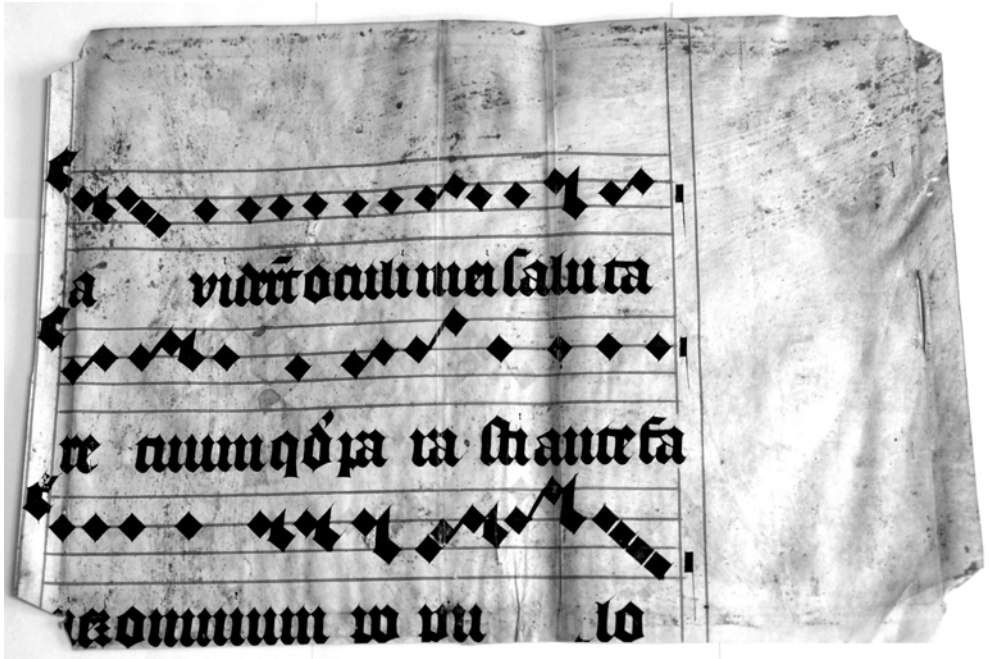 a vider̄t oculi mei saluta
re tuum qd̓ pa ra sti ante fa
ciez omnium po pu lo